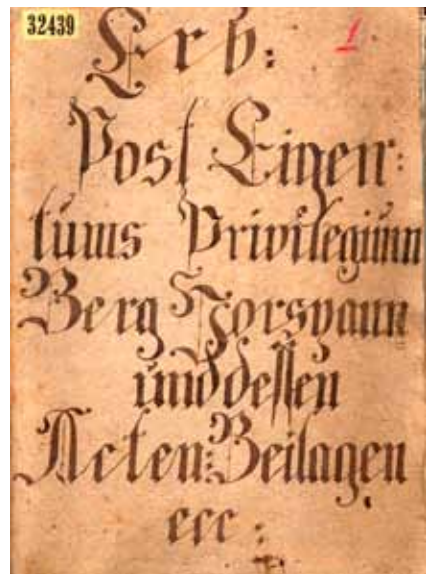 32439
1
Erb:
Post Eigen:
tums Privilegium
Berg Vorspann
und dessen
Acten: Beilagen
ecc: